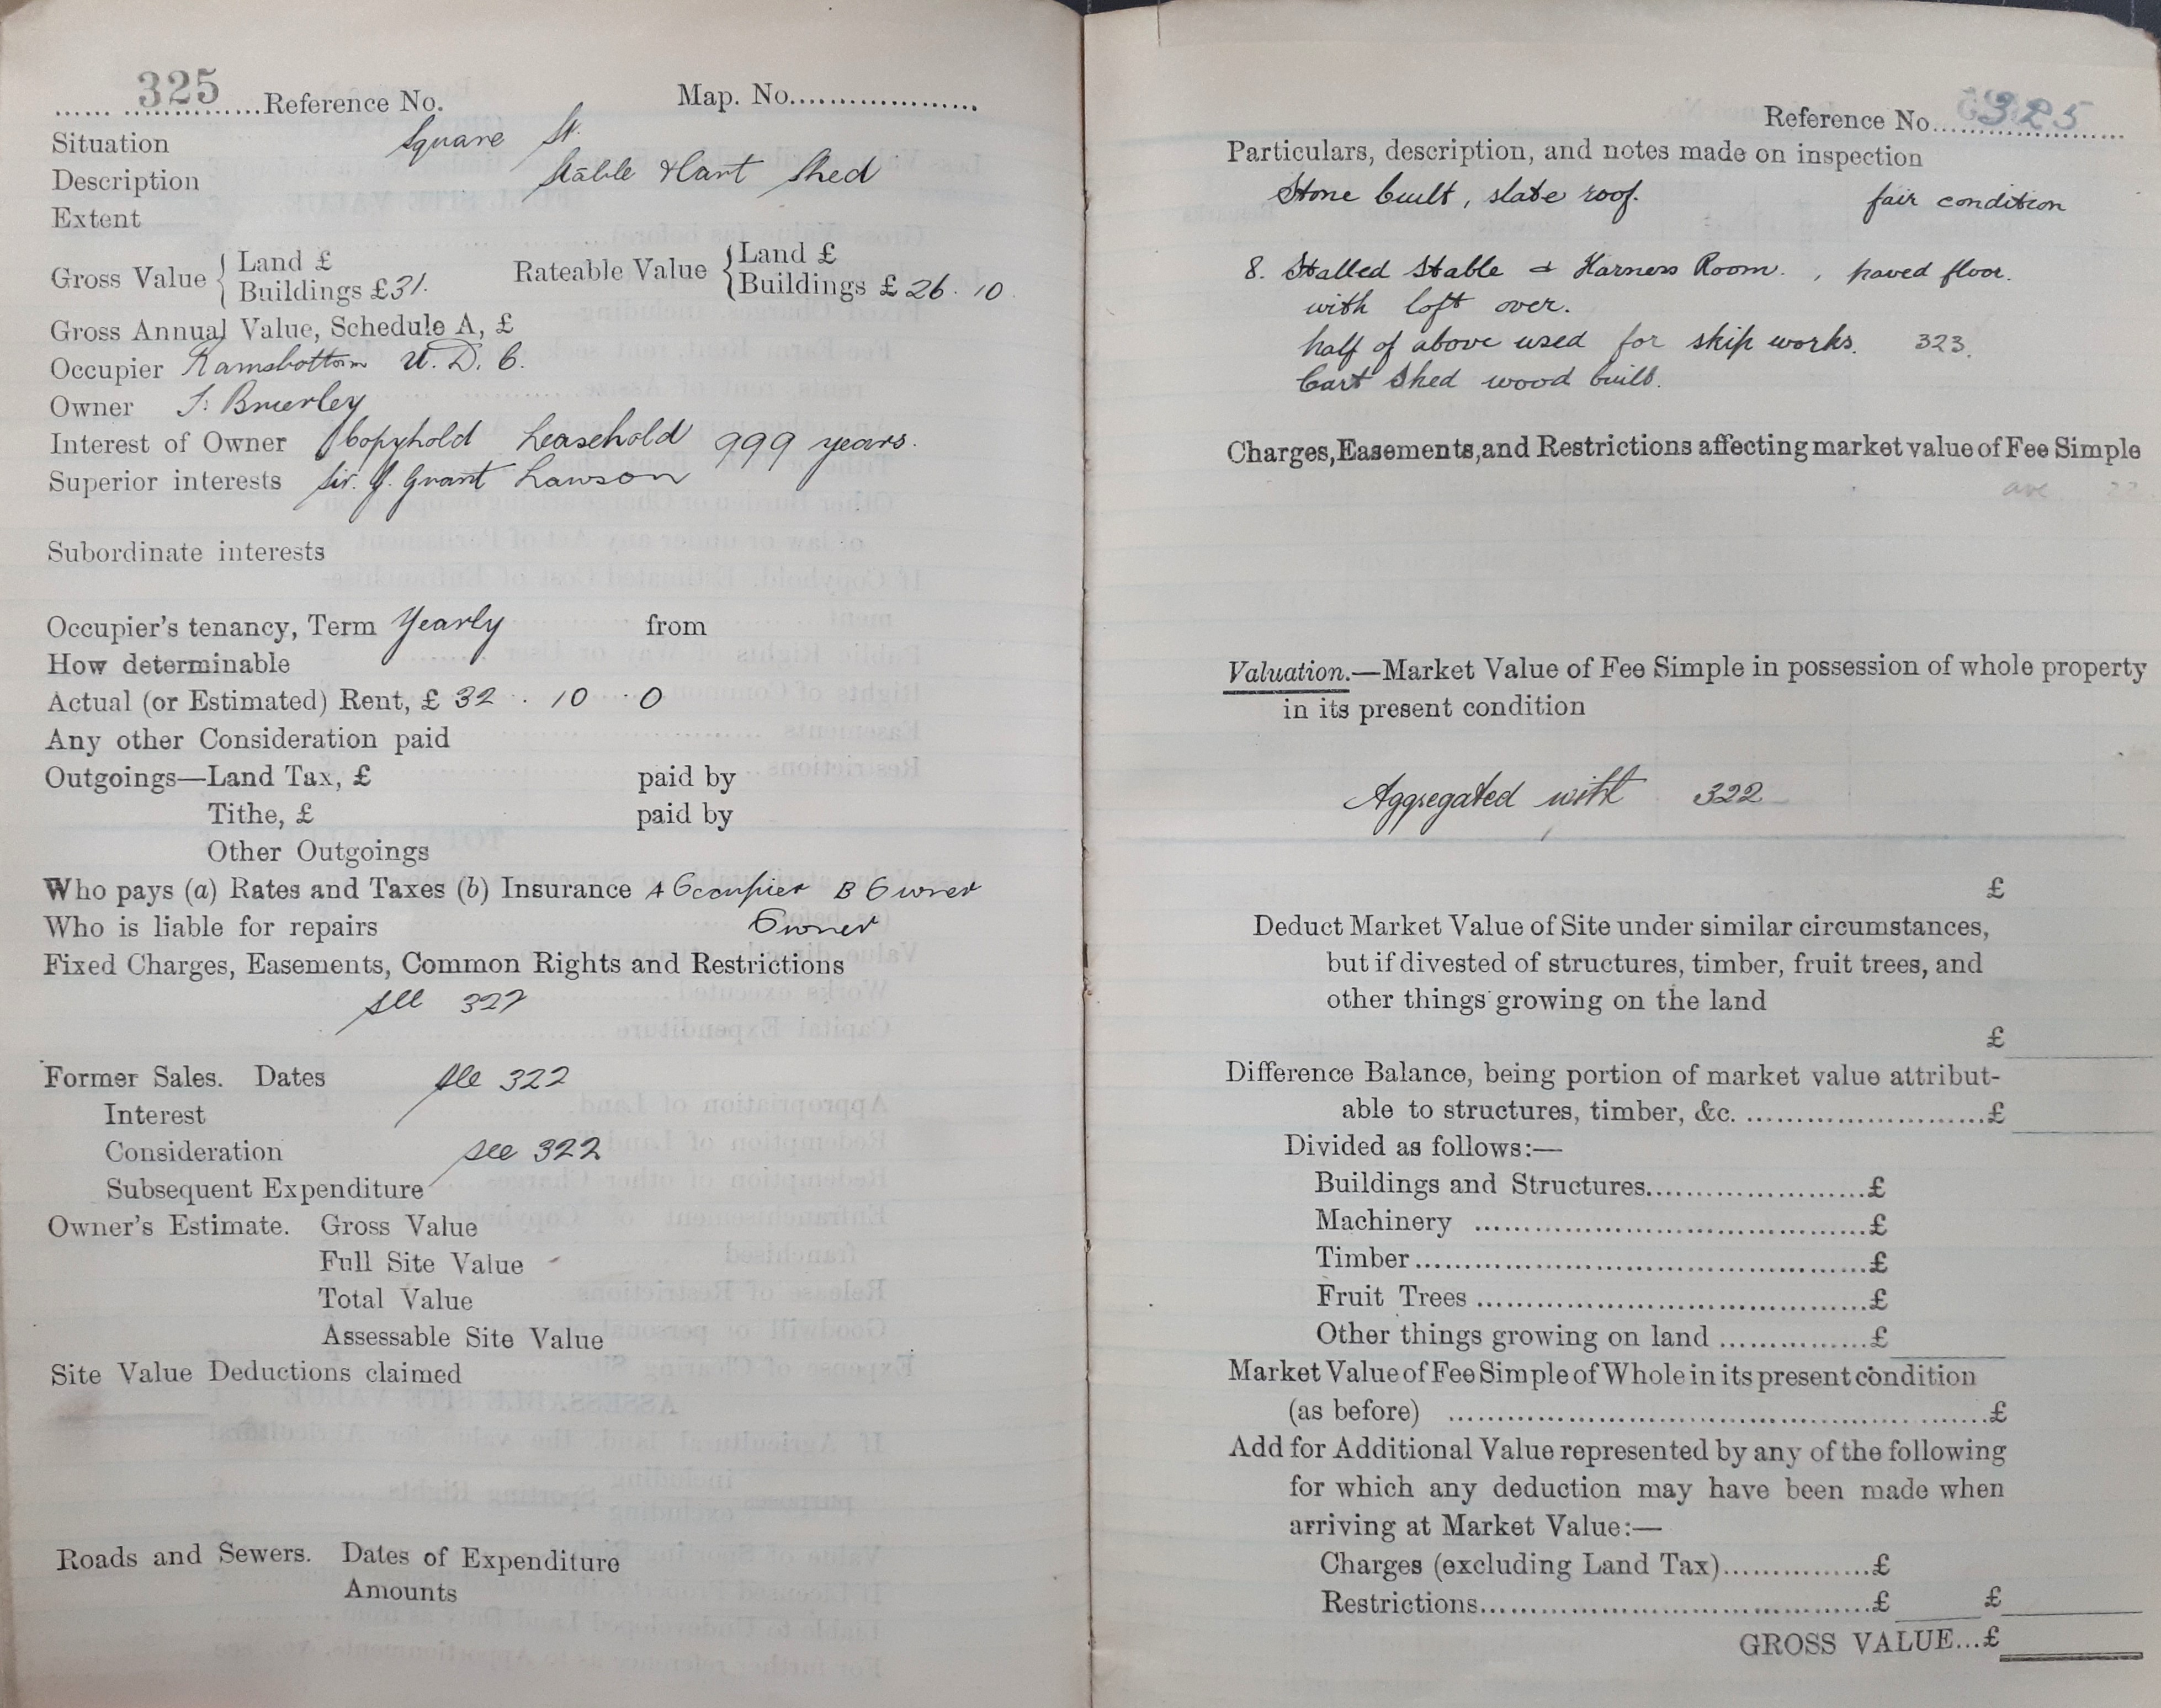 325 Reference No. Map. No.
Situation Square St.
Description Stable & Cart Shed
Extent
Gross Value { Land £
Buildings £31. Rateable Value { Land £
Buildings £ 26 . 10
Gross Annual Value, Schedule A, £
Occupier Ramsbottom U. D. C.
Owner J. Brierley
Interest of Owner Copyhold Leasehold 999 years.
Superior interests Sir. J. Grant Lawson
Subordinate interests
Occupier's tenancy, Term Yearly from
How determinable
Actual (or Estimated) Rent, £ 32 . 10 . 0
Any other Consideration paid
Outgoings—Land Tax, £ paid by
Tithe, £ paid by
Other Outgoings
Who pays (a) Rates and Taxes (b) Insurance A Occupier B Owner
Who is liable for repairs Owner
Fixed Charges, Easements, Common Rights and Restrictions
see 322
Former Sales. Dates see 322
Interest
Consideration see 322
Subsequent Expenditure
Owner's Estimate. Gross Value
Full Site Value
Total Value
Assessable Site Value
Site Value Deductions claimed
Roads and Sewers. Dates of Expenditure
Amounts
Reference No. 325
Particulars, description, and notes made on inspection
Stone built, slate roof. fair condition
8. Stalled Stable & Harness Room. , paved floor.
with loft over.
half of above used for skip works. 323.
Cart Shed wood built.
Charges, Easements, and Restrictions affecting market value of Fee Simple
Valuation.—Market Value of Fee Simple in possession of whole property
in its present condition
Aggregated with 322
£
Deduct Market Value of Site under similar circumstances,
but if divested of structures, timber, fruit trees, and
other things growing on the land
£
Difference Balance, being portion of market value attribut-
able to structures, timber, &c. £
Divided as follows:—
Buildings and Structures £
Machinery £
Timber £
Fruit Trees £
Other things growing on land £
Market Value of Fee Simple of Whole in its present condition
(as before) £
Add for Additional Value represented by any of the following
for which any deduction may have been made when
arriving at Market Value:—
Charges (excluding Land Tax) £
Restrictions £ £
GROSS VALUE...£